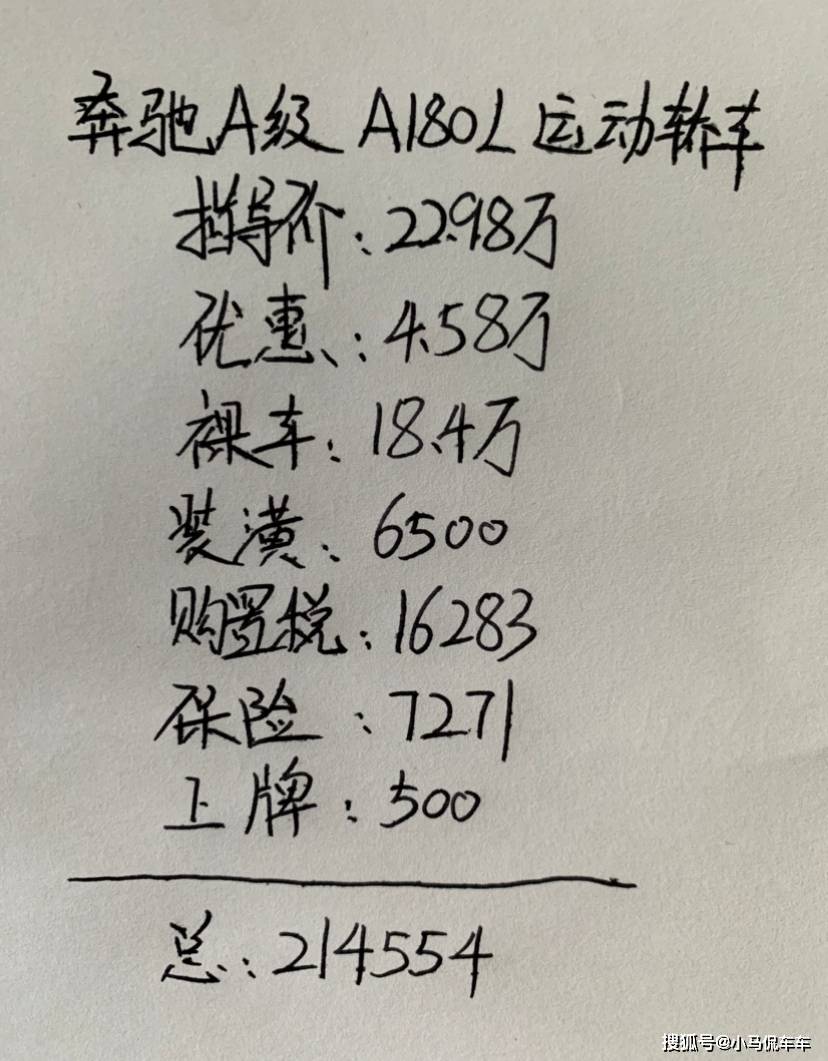 奔驰A级 A180L 运动轿车
指导价：22.98万
优惠：4.58万
裸车：18.4万
装潢：6500
购置税：16283
保险：7271
上牌：500
总：214554
搜狐号@小马侃车车